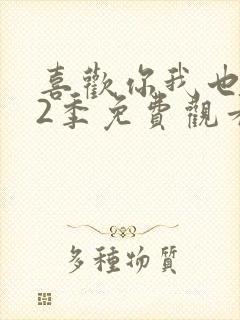 喜歡你我也
2季免費觀
多種物質